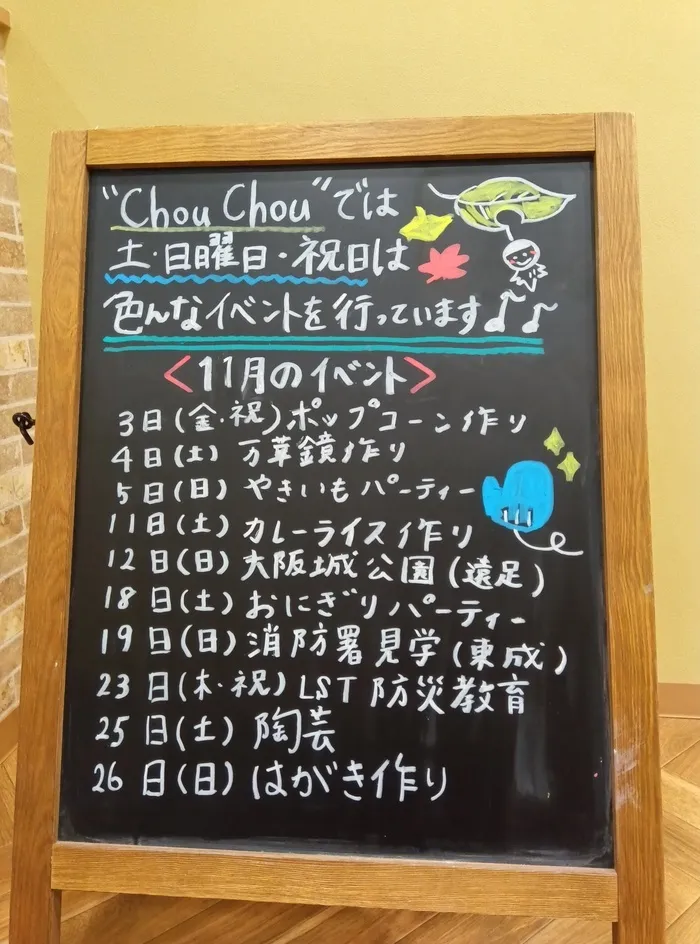 "Chou Chou"では
土・日曜日・祝日は
色んなイベントを行っています♪♪
<11月のイベント>
3日(金・祝)ポップコーン作り
4日(土) 万華鏡作り
5日(日) やきいもパーティー
11日(土) カレーライス作り
12日(日) 大阪城公園(遠足)
18日(土) おにぎりパーティー
19日(日) 消防署見学(東成)
23日(木・祝) LST防災教育
25日(土) 陶芸
26日(日) はがき作り